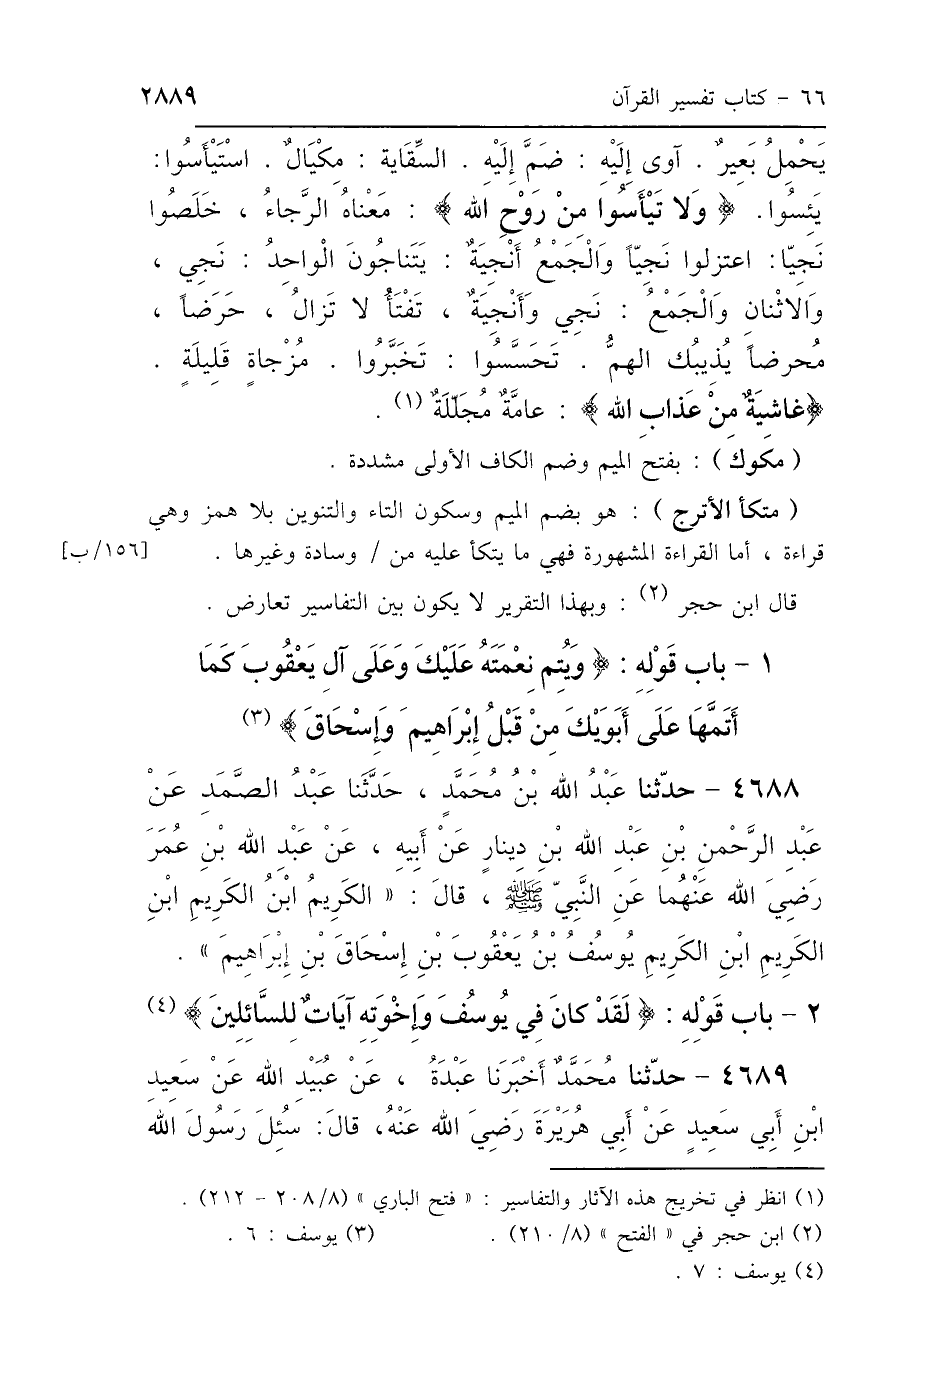 ٦٦ - كتاب تفسير القرآن ٢٨٨٩
يَحْمِلُ بَعِيرٌ . آوى إِلَيْهِ : ضَمَّ إِلَيْهِ . السِّقَاية : مِكْيَالٌ . اسْتَيْأَسُوا :
يَئِسُوا . ﴿ وَلَا تَيْأَسُوا مِنْ رَوْحِ الله ﴾ : مَعْناهُ الرَّجاءُ ، خَلَصُوا
نَجِيّا : اعتزلوا نَجِيّاً وَالْجَمْعُ أَنْجِيَةٌ : يَتَناجُونَ الْواحِدُ : نَجِي ،
وَالاثْنانِ وَالْجَمْعُ : نَجِي وَأَنْجِيَةٌ ، تَفْتَأُ لا تَزالُ ، حَرَضاً ،
مُحرضاً يُذِيبُك الهمُّ . تَحَسَّسُوا : تَخَبَّرُوا . مُزْجاةٍ قَلِيلَةٍ .
﴿غاشِيَةٌ مِنْ عَذابِ الله ﴾ : عامَّةٌ مُجَلِّلَةٌ (١) .
( مكوك ) : بفتح الميم وضم الكاف الأولى مشددة .
( متكأ الأترج ) : هو بضم الميم وسكون التاء والتنوين بلا همز وهي
قراءة ، أما القراءة المشهورة فهي ما يتكأ عليه من / وسادة وغيرها . [١٥٦/ب]
قال ابن حجر (٢) : وبهذا التقرير لا يكون بين التفاسير تعارض .
١ - باب قَوْلِهِ : ﴿ وَيُتِم نِعْمَتَهُ عَلَيْكَ وَعَلَى آلِ يَعْقُوبَ كَمَا
أَتَمَّهَا عَلَى أَبَوَيْكَ مِنْ قَبْلُ إِبْرَاهِيمَ وَإِسْحَاقَ ﴾ (٣)
٤٦٨٨ - حدّثنا عَبْدُ الله بْنُ مُحَمَّدٍ ، حَدَّثَنا عَبْدُ الصَّمَدِ عَنْ
عَبْدِ الرَّحْمنِ بْنِ عَبْدِ الله بْنِ دِينارٍ عَنْ أَبِيهِ ، عَنْ عَبْدِ الله بْنِ عُمَرَ
رَضِيَ الله عَنْهُما عَنِ النَّبِيِّ ﷺ ، قالَ : « الكَرِيمُ ابْنُ الكَرِيمِ ابْنِ
الكَرِيمِ ابْنِ الكَرِيمِ يُوسُفُ بْنُ يَعْقُوبَ بْنِ إِسْحَاقَ بْنِ إِبْرَاهِيمَ » .
٢ - باب قَوْلِهِ : ﴿ لَقَدْ كانَ في يُوسُفَ وَإِخْوَتِهِ آيَاتٌ لِلسَّائِلِينَ ﴾ (٤)
٤٦٨٩ - حدّثنا مُحَمَّدٌ أَخْبَرَنا عَبْدَةُ ، عَنْ عُبَيْدِ الله عَنْ سَعِيدِ
ابْنِ أَبِي سَعِيدٍ عَنْ أَبِي هُرَيْرَةَ رَضِيَ الله عَنْهُ ، قالَ : سُئِلَ رَسُولُ الله
(١) انظر في تخريج هذه الآثار والتفاسير : « فتح الباري » (٢٠٨/٨ – ٢١٢) .
(٢) ابن حجر في « الفتح » (٢١٠/٨) . (٣) يوسف : ٦ .
(٤) يوسف : ٧ .